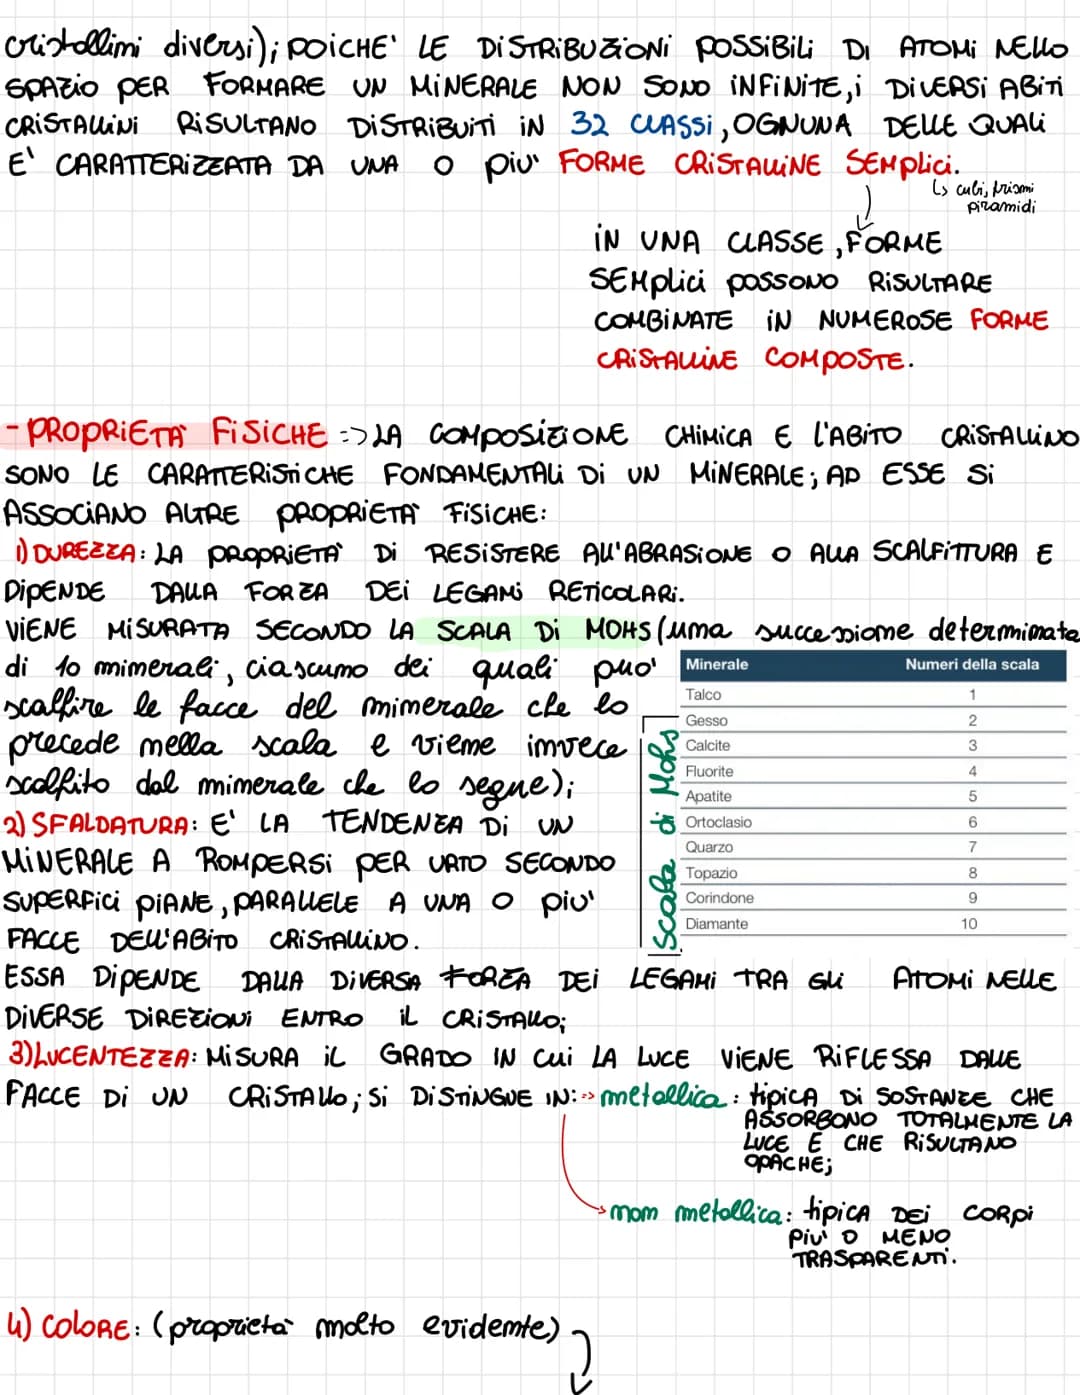 cristallini diversi); POICHE' LE DISTRIBUZIONI POSSIBILI DI ATOMI NELLO
SPAZIO PER FORMARE UN MINERALE NON SONO INFINITE, i DIVERSI ABITI
CRISTALLINI RISULTANO DISTRIBUITI IN 32 CLASSI, OGNUNA DELLE QUALI
E' CARATTERIZZATA DA UNA O PIU' FORME CRISTALLINE SEMPLICI.
↳ cubi, prismi
piramidi
IN UNA CLASSE, FORME
SEMPLICI POSSONO RISULTARE
COMBINATE IN NUMEROSE FORME
CRISTALLINE COMPOSTE.
- PROPRIETA' FISICHE => LA COMPOSIZIONE CHIMICA E L'ABITO CRISTALLINO
SONO LE CARATTERISTICHE FONDAMENTALI DI UN MINERALE; AD ESSE SI
ASSOCIANO ALTRE PROPRIETA' FISICHE:
1) DUREZZA: LA PROPRIETA' DI RESISTERE ALL'ABRASIONE O ALLA SCALFITTURA E
DIPENDE DALLA FORZA DEI LEGAMI RETICOLARI.
VIENE MISURATA SECONDO LA SCALA DI MOHS (una successione determinata
di 10 minerali, ciascuno dei quali puo'
scalfire le facce del minerale che lo
precede nella scala e viene invece
scalfito dal minerale che lo segue);
Scala di Mohs
Minerale Numeri della scala
Talco 1
Gesso 2
Calcite 3
Fluorite 4
Apatite 5
Ortoclasio 6
Quarzo 7
Topazio 8
Corindone 9
Diamante 10
2) SFALDATURA: E' LA TENDENZA DI UN
MINERALE A ROMPERSI PER URTO SECONDO
SUPERFICI PIANE, PARALLELE A UNA O PIU'
FACCE DELL'ABITO CRISTALLINO.
ESSA DIPENDE DALLA DIVERSA FORZA DEI LEGAMI TRA GLI ATOMI NELLE
DIVERSE DIREZIONI ENTRO IL CRISTALLO;
3) LUCENTEZZA: MISURA IL GRADO IN CUI LA LUCE VIENE RIFLESSA DALLE
FACCE DI UN CRISTALLO; SI DISTINGUE IN: => metallica: tipica DI SOSTANZE CHE
ASSORBONO TOTALMENTE LA
LUCE E CHE RISULTANO
OPACHE;
non metallica: tipica DEI CORPI
PIU' O MENO
TRASPARENTI.
4) COLORE: (proprieta' molto evidente)